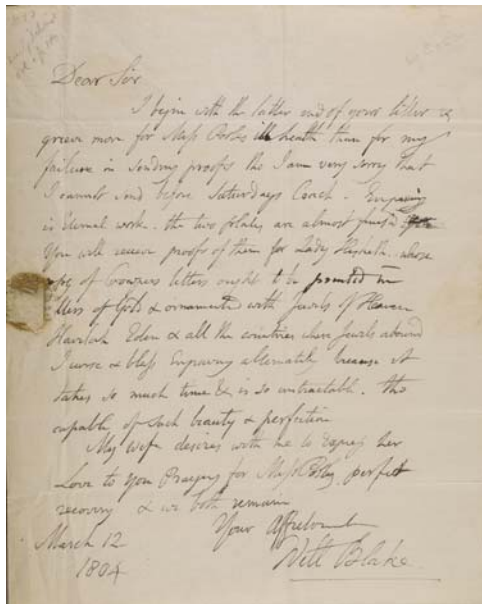 Dear Sir
I begin with the latter end of your letter &
grieve more for Miss Pooles ill health than for my
failure in sending proofs tho I am very sorry that
I cannot send before Saturdays Coach. Engraving
is Eternal work. the two plates are almost finishd
You will receive proofs of them for Lady Hesketh. whose
copy of Cowpers letters ought to be printed in
letters of Gold & ornamented with Jewels of Heaven
Havilah Eden & all the countries where Jewels abound
I curse & bless Engraving alternately because it
takes so much time & is so untractable. tho
capable of such beauty & perfection
My wife desires with me to Express her
Love to you Praying for Miss Pooles perfect
recovery & we both remain
Your Affectionate
March 12
Will Blake
1804